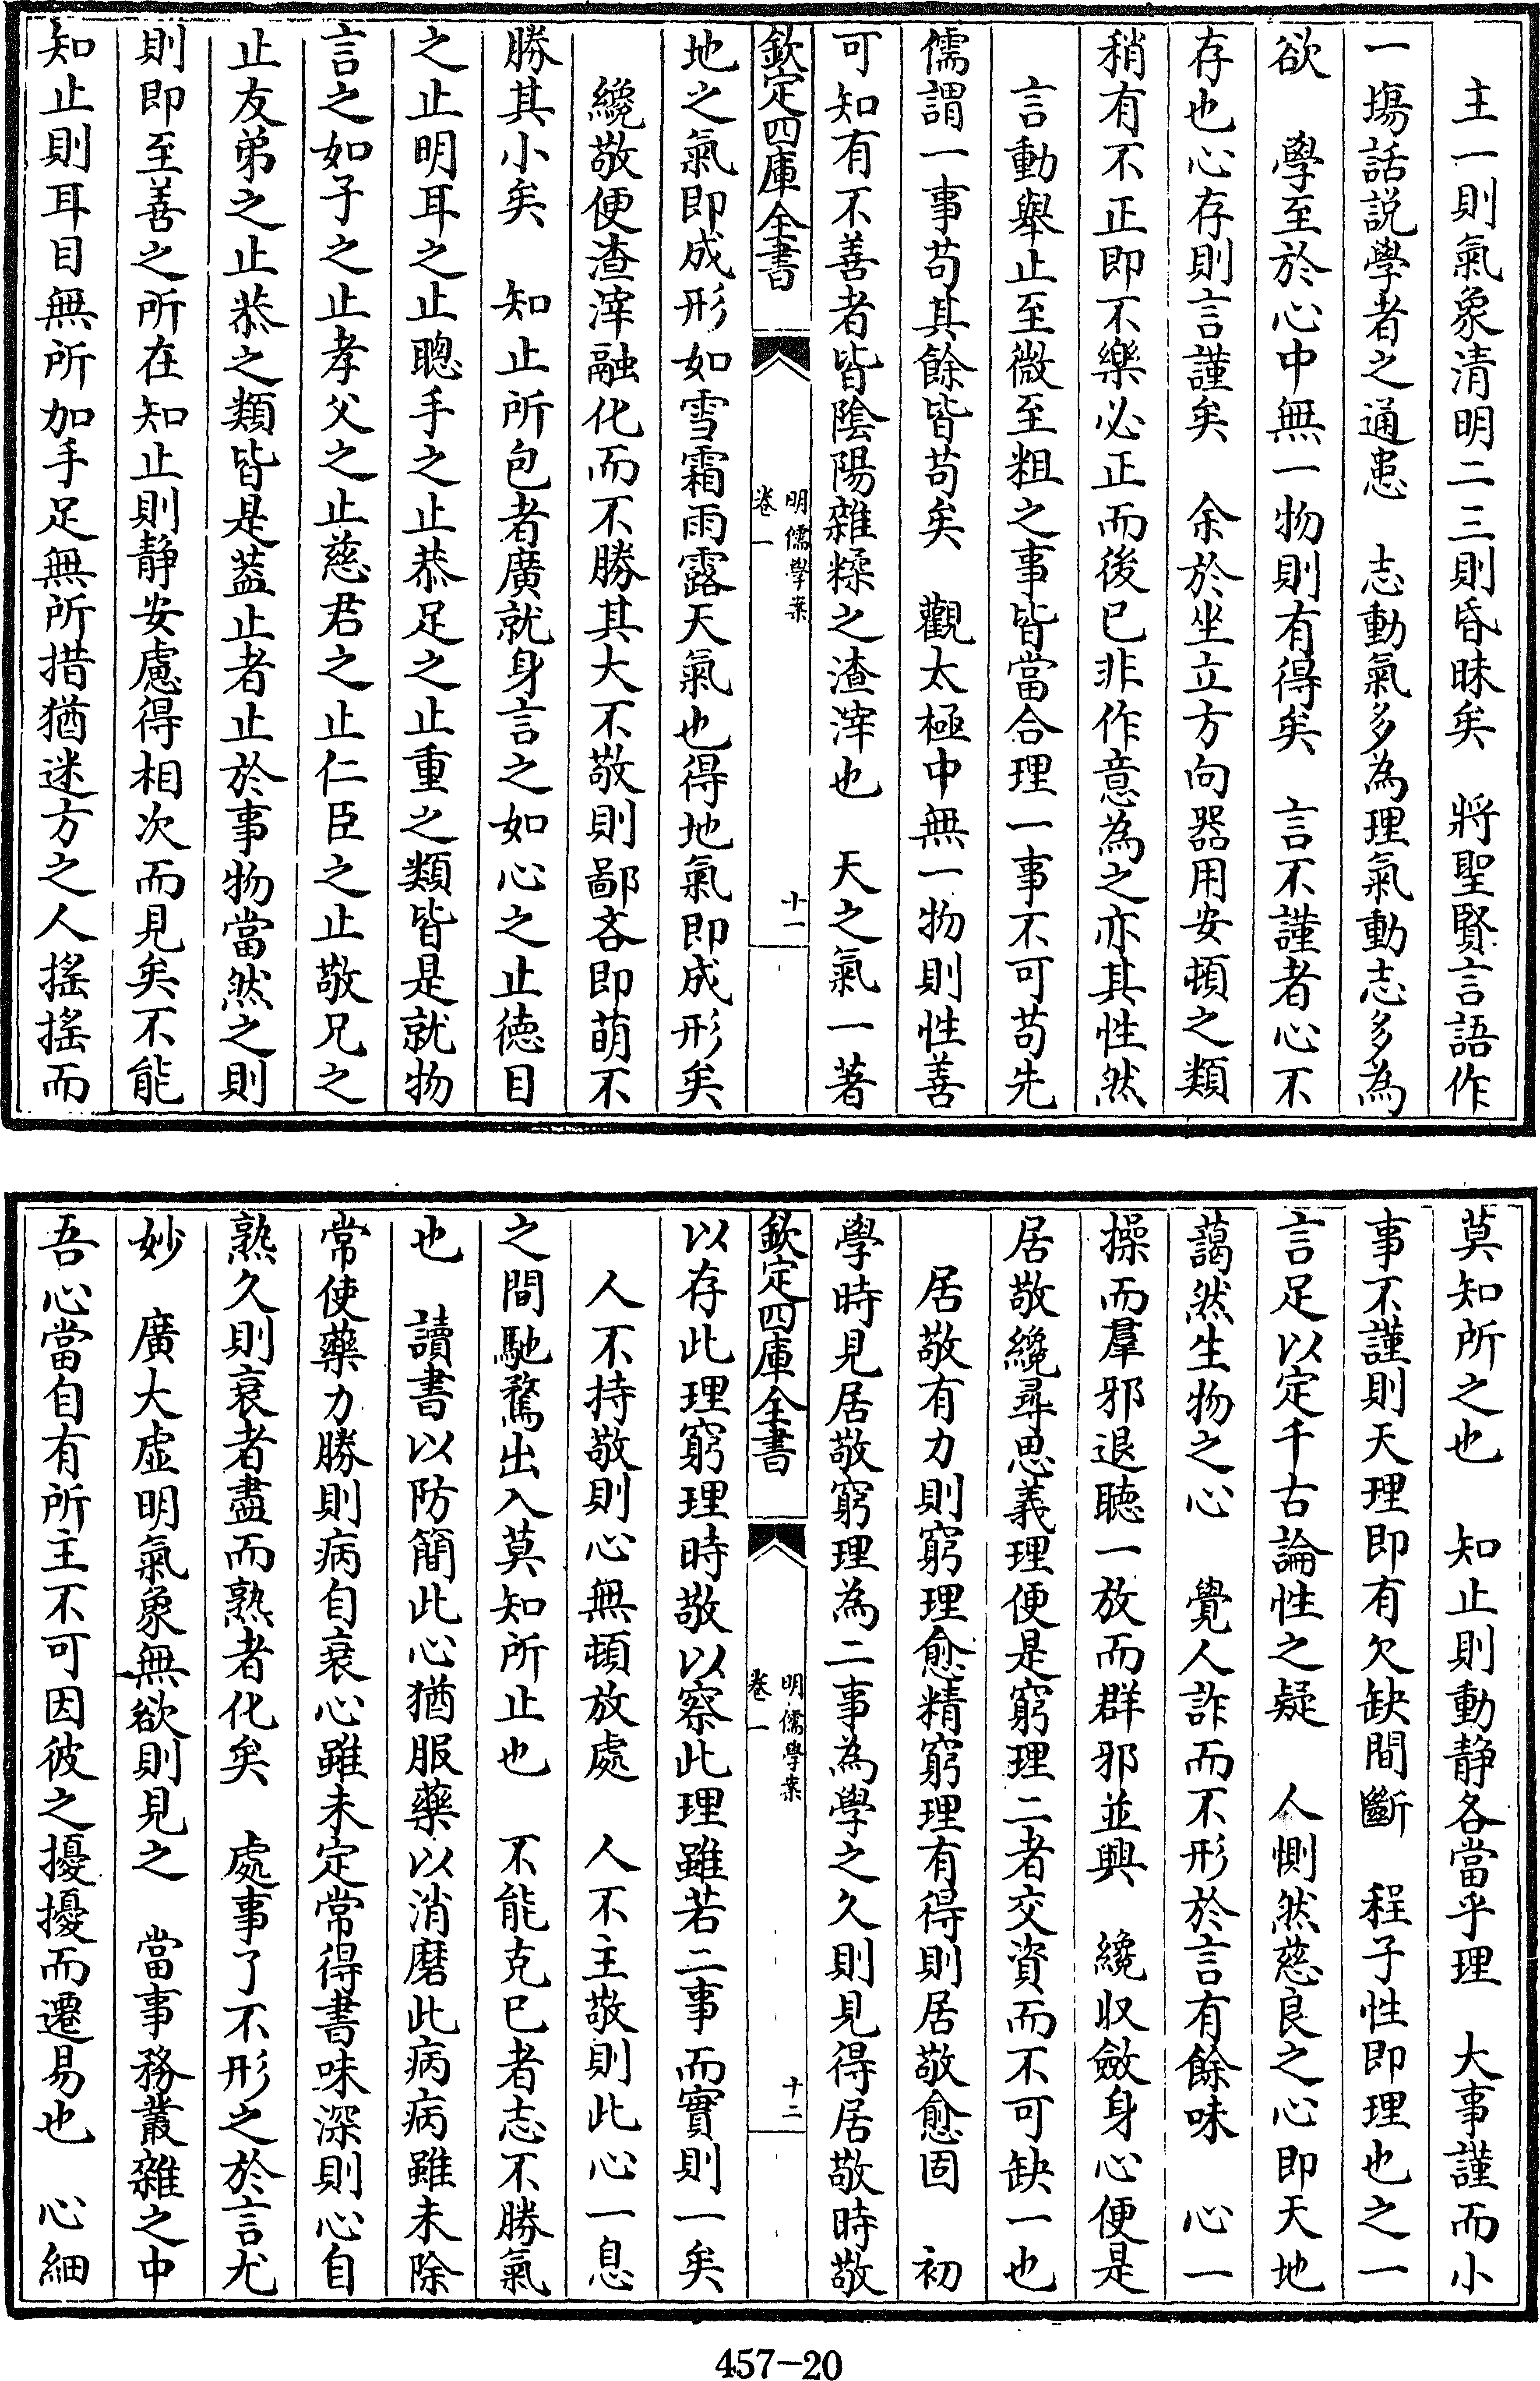 主一則氣象清明二三則昏昧矣　將聖賢言語作
一塲話説學者之通患　志動氣多為理氣動志多為
欲　學至於心中無一物則有得矣　言不謹者心不
存也心存則言謹矣　余於坐立方向器用安頓之類
稍有不正即不樂必正而後已非作意為之亦其性然
言動舉止至微至粗之事皆當合理一事不可苟先
儒謂一事苟其餘皆苟矣　觀太極中無一物則性善
可知有不善者皆陰陽雜糅之渣滓也　天之氣一著
欽定四庫全書
明儒學案
卷一
十一
地之氣即成形如雪霜雨露天氣也得地氣即成形矣
纔敬便渣滓融化而不勝其大不敬則鄙吝即萌不
勝其小矣　知止所包者廣就身言之如心之止德目
之止明耳之止聰手之止恭足之止重之類皆是就物
言之如子之止孝父之止慈君之止仁臣之止敬兄之
止友弟之止恭之類皆是葢止者止於事物當然之則
則即至善之所在知止則静安慮得相次而見矣不能
知止則耳目無所加手足無所措猶迷方之人搖搖而
莫知所之也　知止則動静各當乎理　大事謹而小
事不謹則天理即有欠缺間斷　程子性即理也之一
言足以定千古論性之疑　人惻然慈良之心即天地
藹然生物之心　覺人詐而不形於言有餘味　心一
操而羣邪退聽一放而群邪並興　纔收斂身心便是
居敬纔尋思義理便是窮理二者交資而不可缺一也
居敬有力則窮理愈精窮理有得則居敬愈固　初
學時見居敬窮理為二事為學之久則見得居敬時敬
欽定四庫全書
明儒學案
卷一
十二
以存此理窮理時敬以察此理雖若二事而實則一矣
人不持敬則心無頓放處　人不主敬則此心一息
之間馳騖出入莫知所止也　不能克己者志不勝氣
也　讀書以防簡此心猶服藥以消磨此病病雖未除
常使藥力勝則病自衰心雖未定常得書味深則心自
熟久則衰者盡而熟者化矣　處事了不形之於言尤
妙　廣大虚明氣象無欲則見之　當事務叢雜之中
吾心當自有所主不可因彼之擾擾而遷易也　心細
457-20